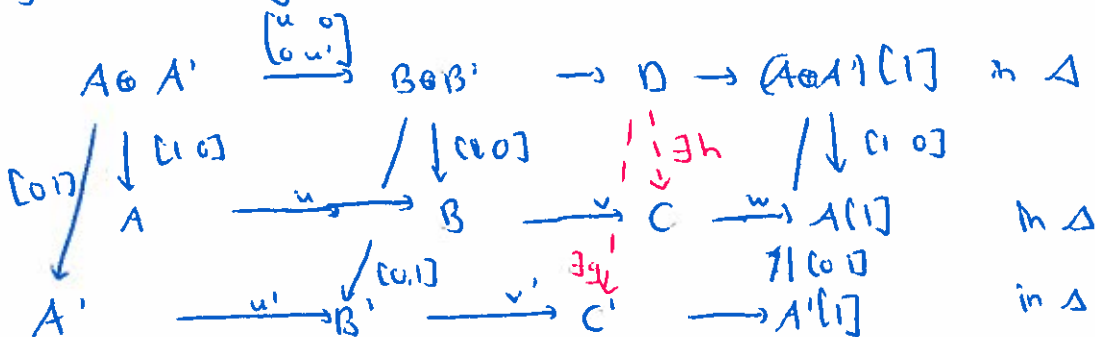 [u 0
0 u']
A⊕A' → B⊕B' → D → (A⊕A')[1] in Δ
[0 1] [1 0] [1 0] ∃h [1 0]
A u→ B v→ C w→ A[1] in Δ
[0,1] ∃g [0 1]
A' u'→ B' v'→ C' → A'[1] in Δ